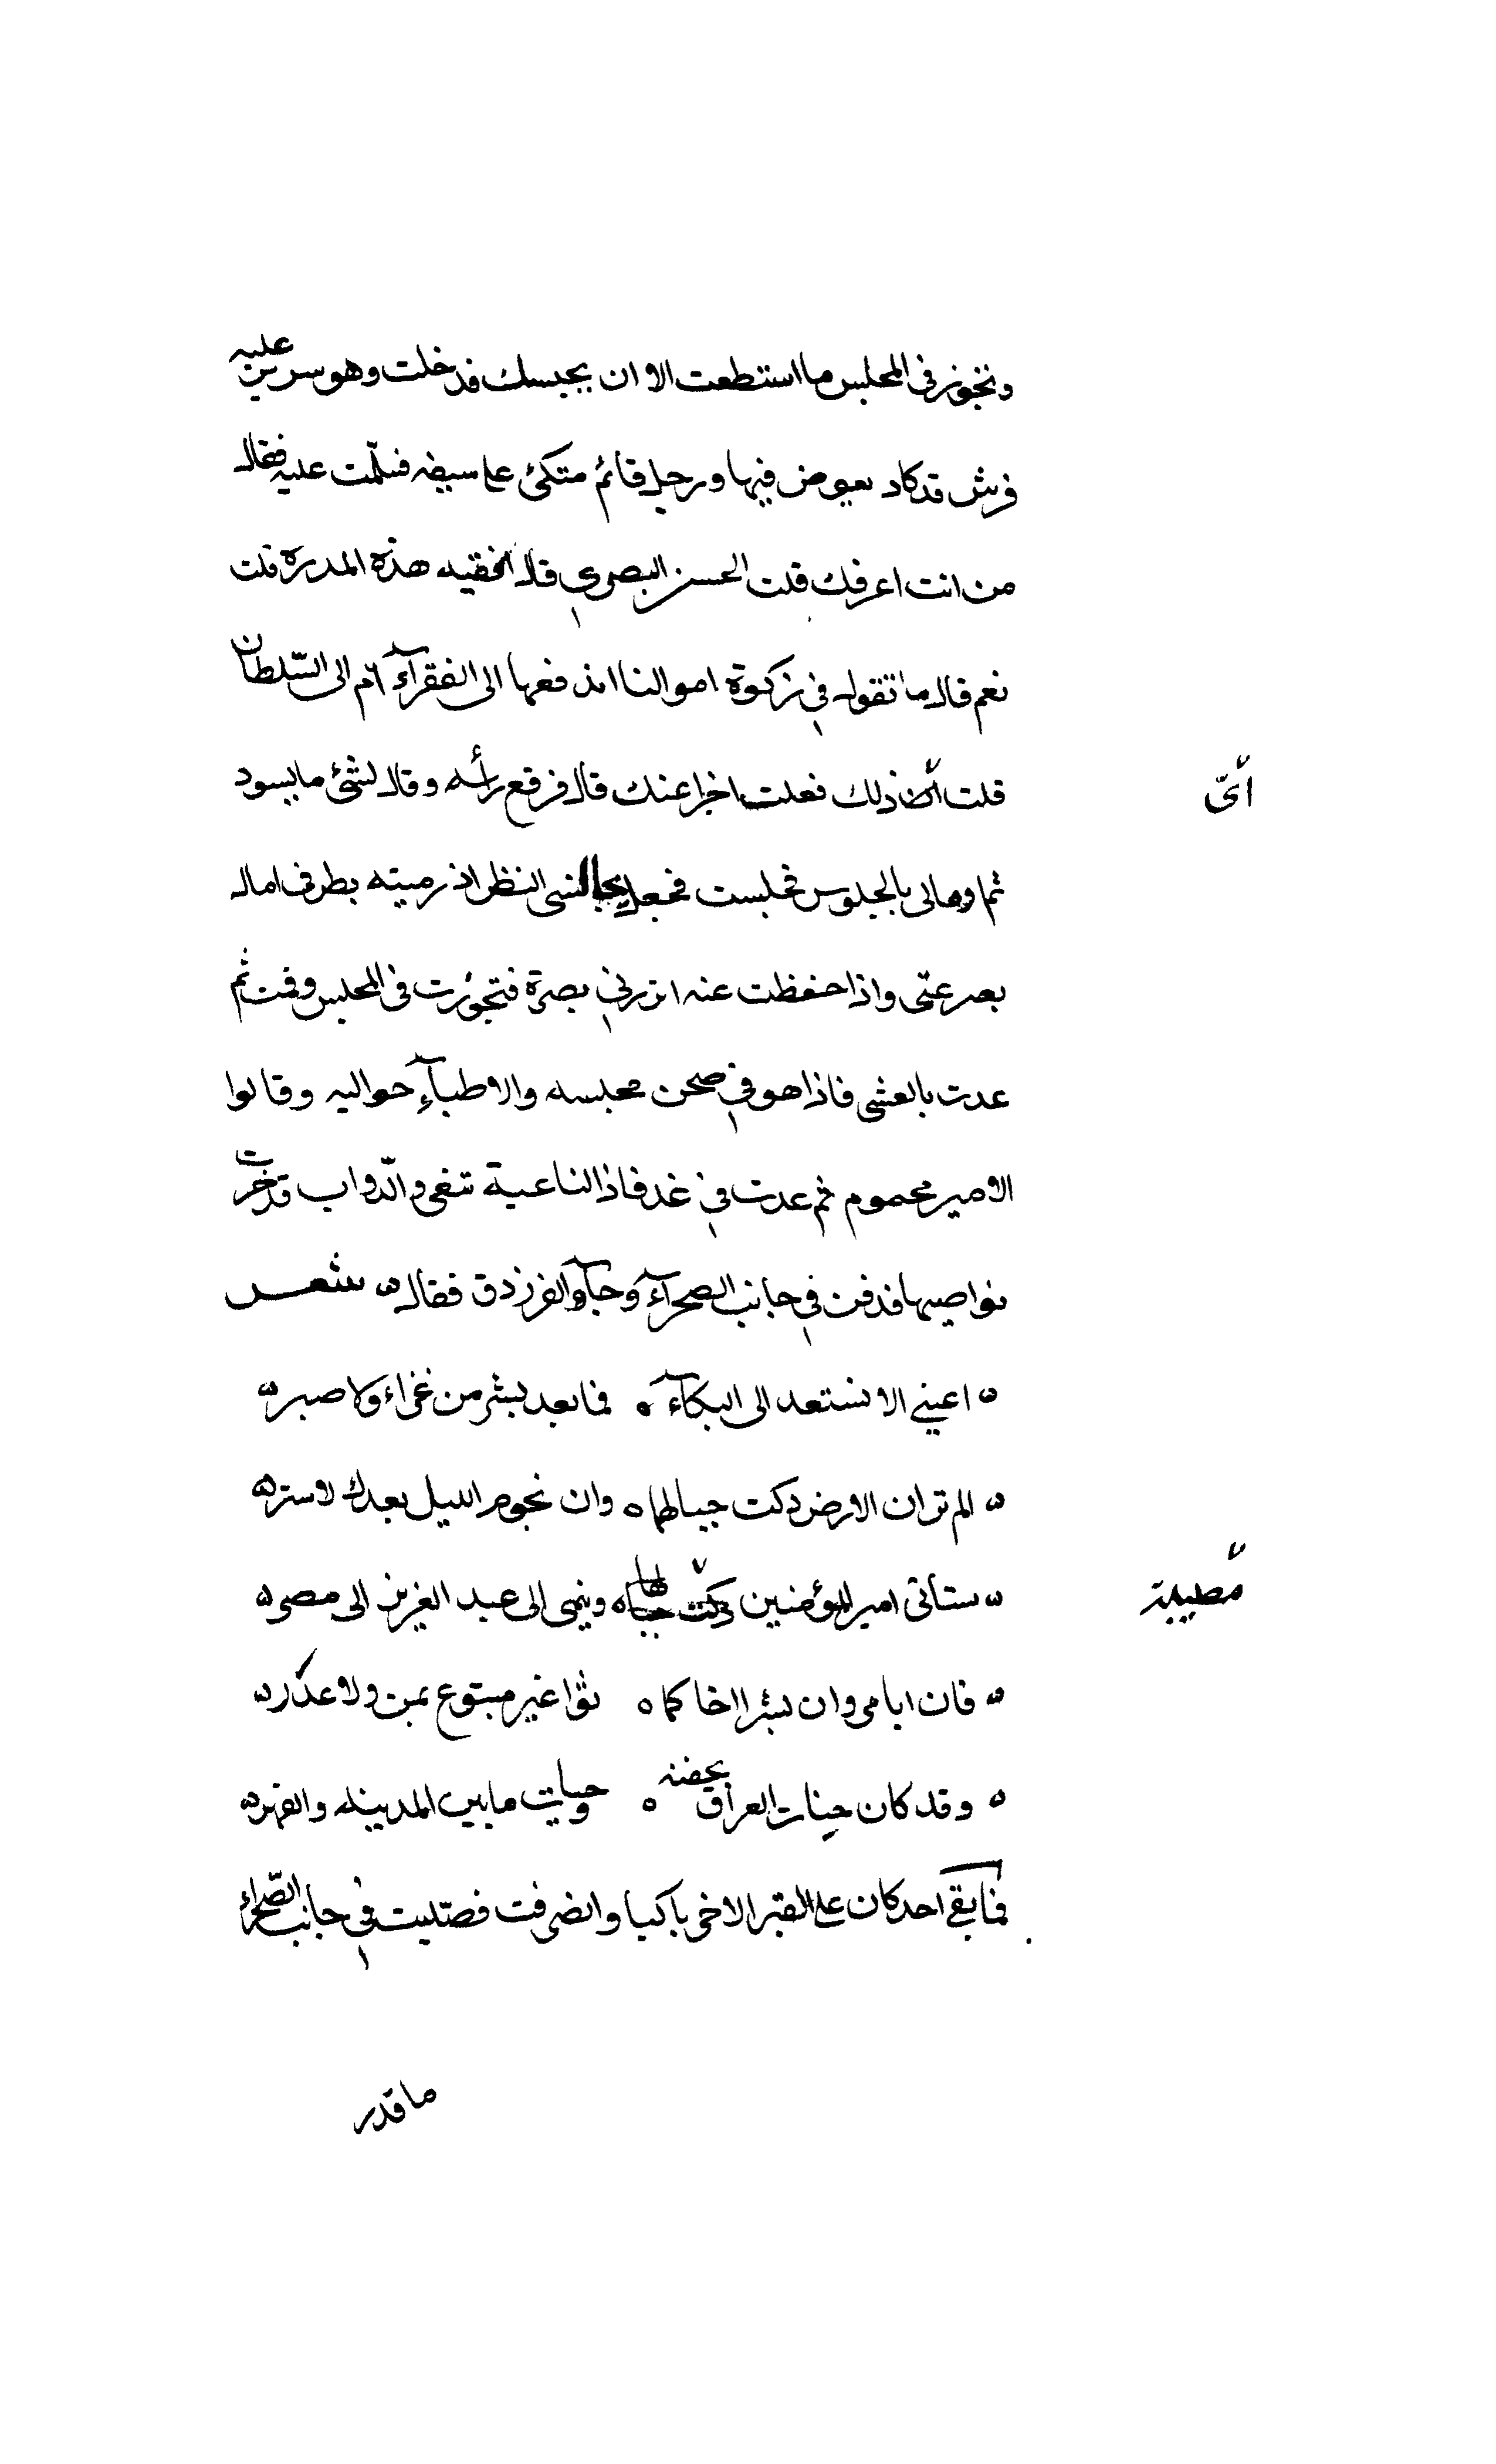 وتجوز في المجلس ما استطعت الا ان يحبسك فدخلت وهو سرير عليه
فرش قد كاد يعوض فيها ورجل قائم متكئ على سيفه فسلّمت عليه فقال
من انت اعرفك قلت الحسن البصري قال افقيه هذه المدرة قلت
نعم قال ما تقول في زكوة اموالنا اندفعها الى الفقرآء ام الى السّلطان
قلت ذلك فعلت اخرا عنك قال فرفع رأسه وقال لشئ ما يسود
ائّ
ثم اومالى بالجلوس فجلست فجعل النظر اذ رميته بطرفي امال
بصر عنّى واذا حفظت عنه بصرة فتجوزت في المجلس وقمت ثم
عدت بالعشى فاذا هو في صحن مجلسه والاطبآء حواليه وقالوا
الامير محموم ثم عدت في غد فاذ الناعية تنعى والدّواب قد خرت
نواصيها فدفن في جانب الصحرآء وجآء الفرزدق فقال شعر
اعيني الا تستعد الى البكآء فما بعد بشر من غراء ولا صبر
الم تر ان الارض دكت جبالها وان نجوم الليل بعدك لا ستر
ستأتى امير المؤمنين وينمى الى عبد الغزيز الى مصر
مصيبة
فان ابا مروان بشرا اخاكما ثوا غير متبوع بمن ولا عذر
وقد كان حيات العراق يخفنه وحيات ما بين المدينه والقهر
فما بقى احد كان على القبر الا خر باكيا وانصرفت فصلّيت في جانب الصّحراء
ما قدر